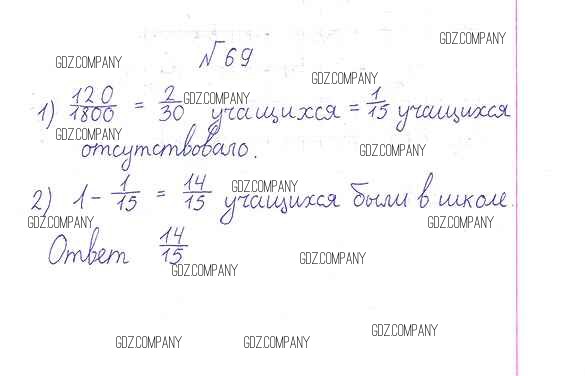 №69
1) 120/1800 = 2/30 учащихся = 1/15 учащихся
отсутствовало.
2) 1 - 1/15 = 14/15 учащихся были в школе.
Ответ 14/15
GDZ.COMPANY
GDZ.COMPANY
GDZ.COMPANY
GDZ.COMPANY
GDZ.COMPANY
GDZ.COMPANY
GDZ.COMPANY
GDZ.COMPANY
GDZ.COMPANY
GDZ.COMPANY
GDZ.COMPANY
GDZ.COMPANY
GDZ.COMPANY
GDZ.COMPANY